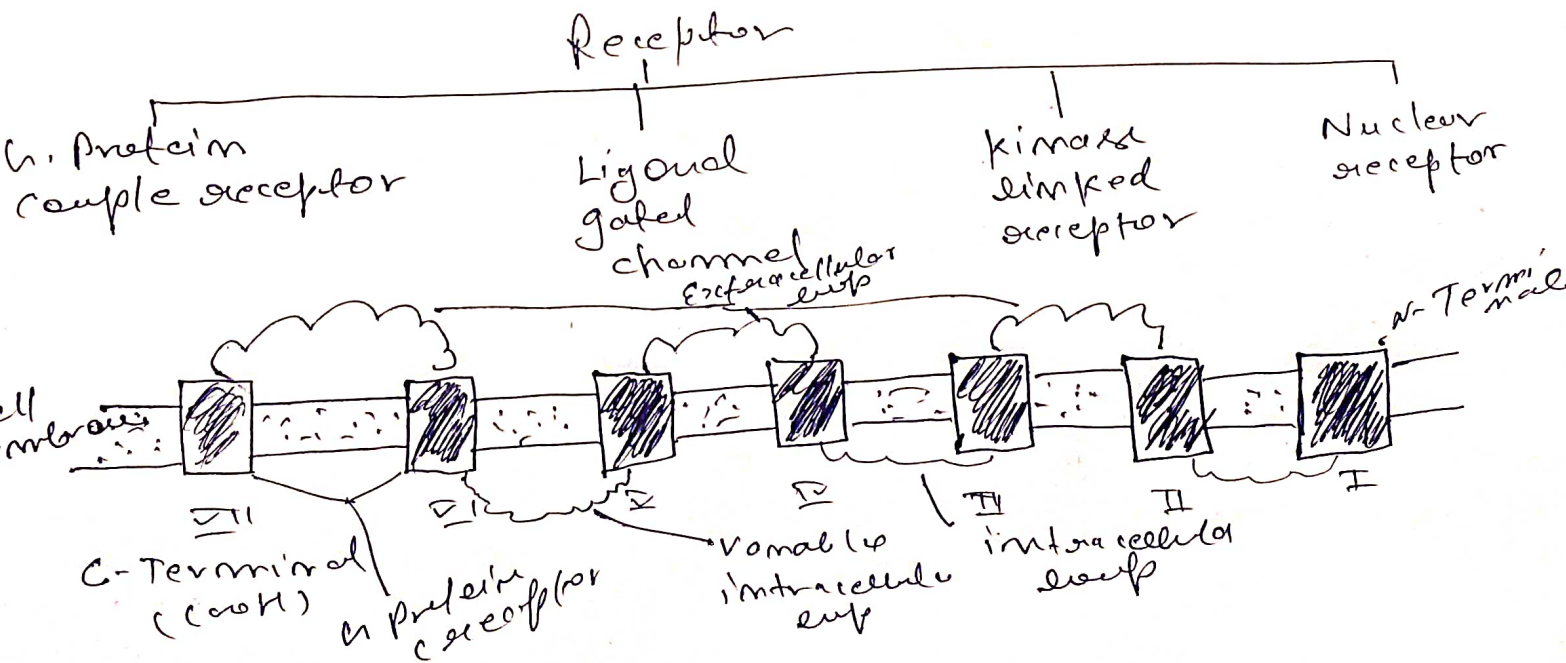 Receptor
G. Protein
couple receptor
Ligand
gated
channel
kinase
linked
receptor
Nuclear
receptor
Extracellular
loop
N-Termi
nal
cell
membrane
VII
VI
V
IV
III
II
I
C-Terminal
(COOH)
G Protein
receptor
Variable
intracellular
loop
intracellular
loop